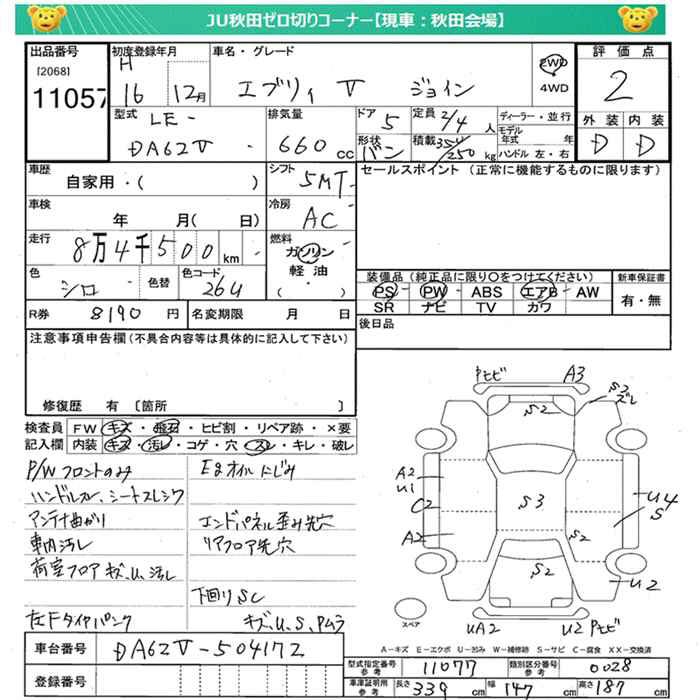 JU秋田ゼロ切りコーナー【現車:秋田会場】
出品番号
[2068]
11057
初度登録年月
H
16 12月
車名・グレード
エブリィ V ジョイン
2WD
4WD
評価点
2
型式
LE-
DA62V
排気量
660 CC
ドア
5
形状
バン
定員
2/4 人
積載
350/250 kg
ディーラー・並行
モデル年式 年
ハンドル 左・右
外装 内装
D D
車歴
自家用・( )
シフト
5MT
セールスポイント(正常に機能するものに限ります)
車検
年 月( 日)
冷房
AC
走行
8万4千500km
燃料
ガソリン
軽油
( )
色
シロ
色替
色コード
26U
装備品(純正品に限り〇をつけてください)
PS PW ABS エアB AW
SR ナビ TV カワ
新車保証書
有・無
R券 8190 円
名変期限 月 日
後日品
注意事項申告欄(不具合内容等は具体的に記入して下さい)
修復歴 有 〔箇所 〕
検査員 FW キズ・飛石・ヒビ割・リペア跡・×要
記入欄 内装 キズ・汚レ・コゲ・穴・スレ・キレ・破レ
P/Wフロントのみ
ハンドルスレ、シートスレシワ
アンテナ曲がり
車内汚レ
荷室フロア キズ、U、汚レ
左Fタイヤパンク
Egオイルにじみ
エンドパネル歪み先穴
リアフロア先穴
下回りSC
キズ、U、S、Pムラ
Pヒビ A3
S2 ズレ
S2
A2
U1
C2
A2
S3
U4
S
S2
S2
U2
UA2
U2 Pヒビ
スペア
A-キズ E-エクボ U-凹み W-補修跡 S-サビ C-腐食 XX-交換済
車台番号 DA62V-504172
登録番号
型式指定番号 参考 11077
類別区分番号 参考 0028
車庫証明用 参考 長さ 339 cm 幅 147 cm 高さ 187 cm